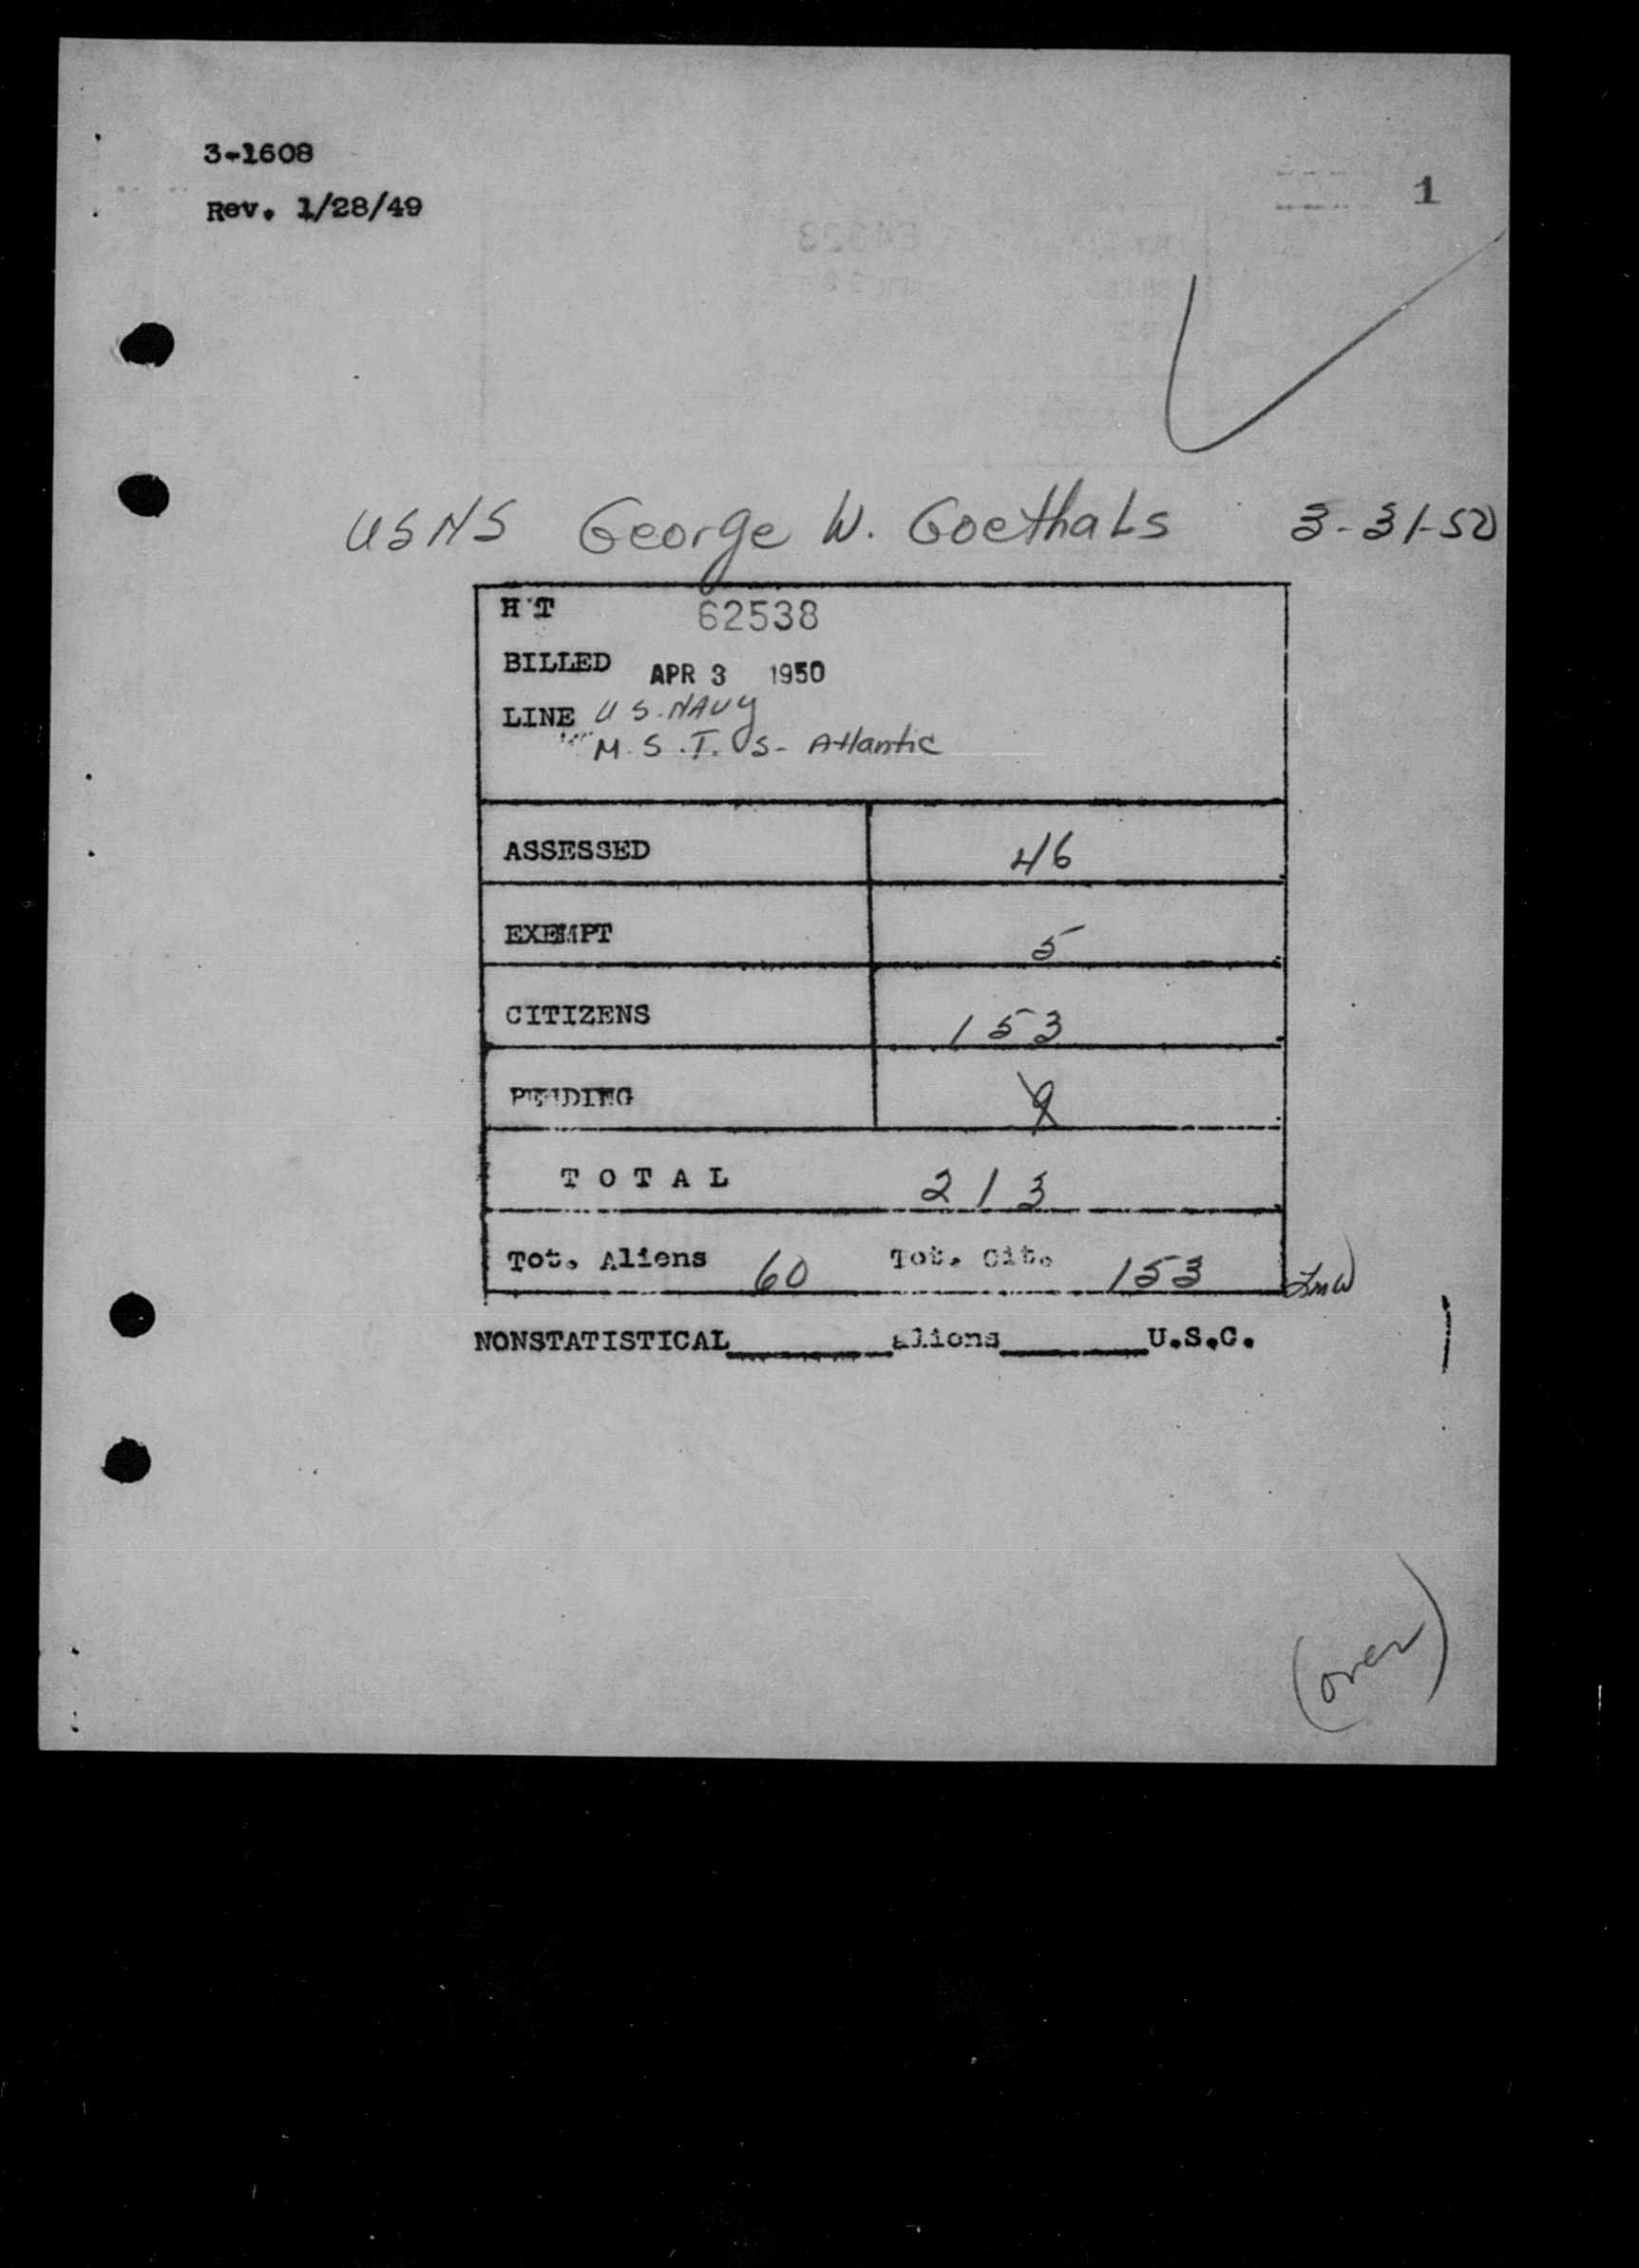 3-1608
1
Rev. 1/28/49
USNS George W. Goethals 3-31-50
HT 62538
BILLED APR 3 1950
LINE U S. NAVY
M. S. T. S- Atlantic
ASSESSED 46
EXEMPT 5
CITIZENS 153
PENDING 9
TOTAL 213
Tot. Aliens 60 Tot. Cit. 153
NONSTATISTICAL aliens U.S.C.
(over)